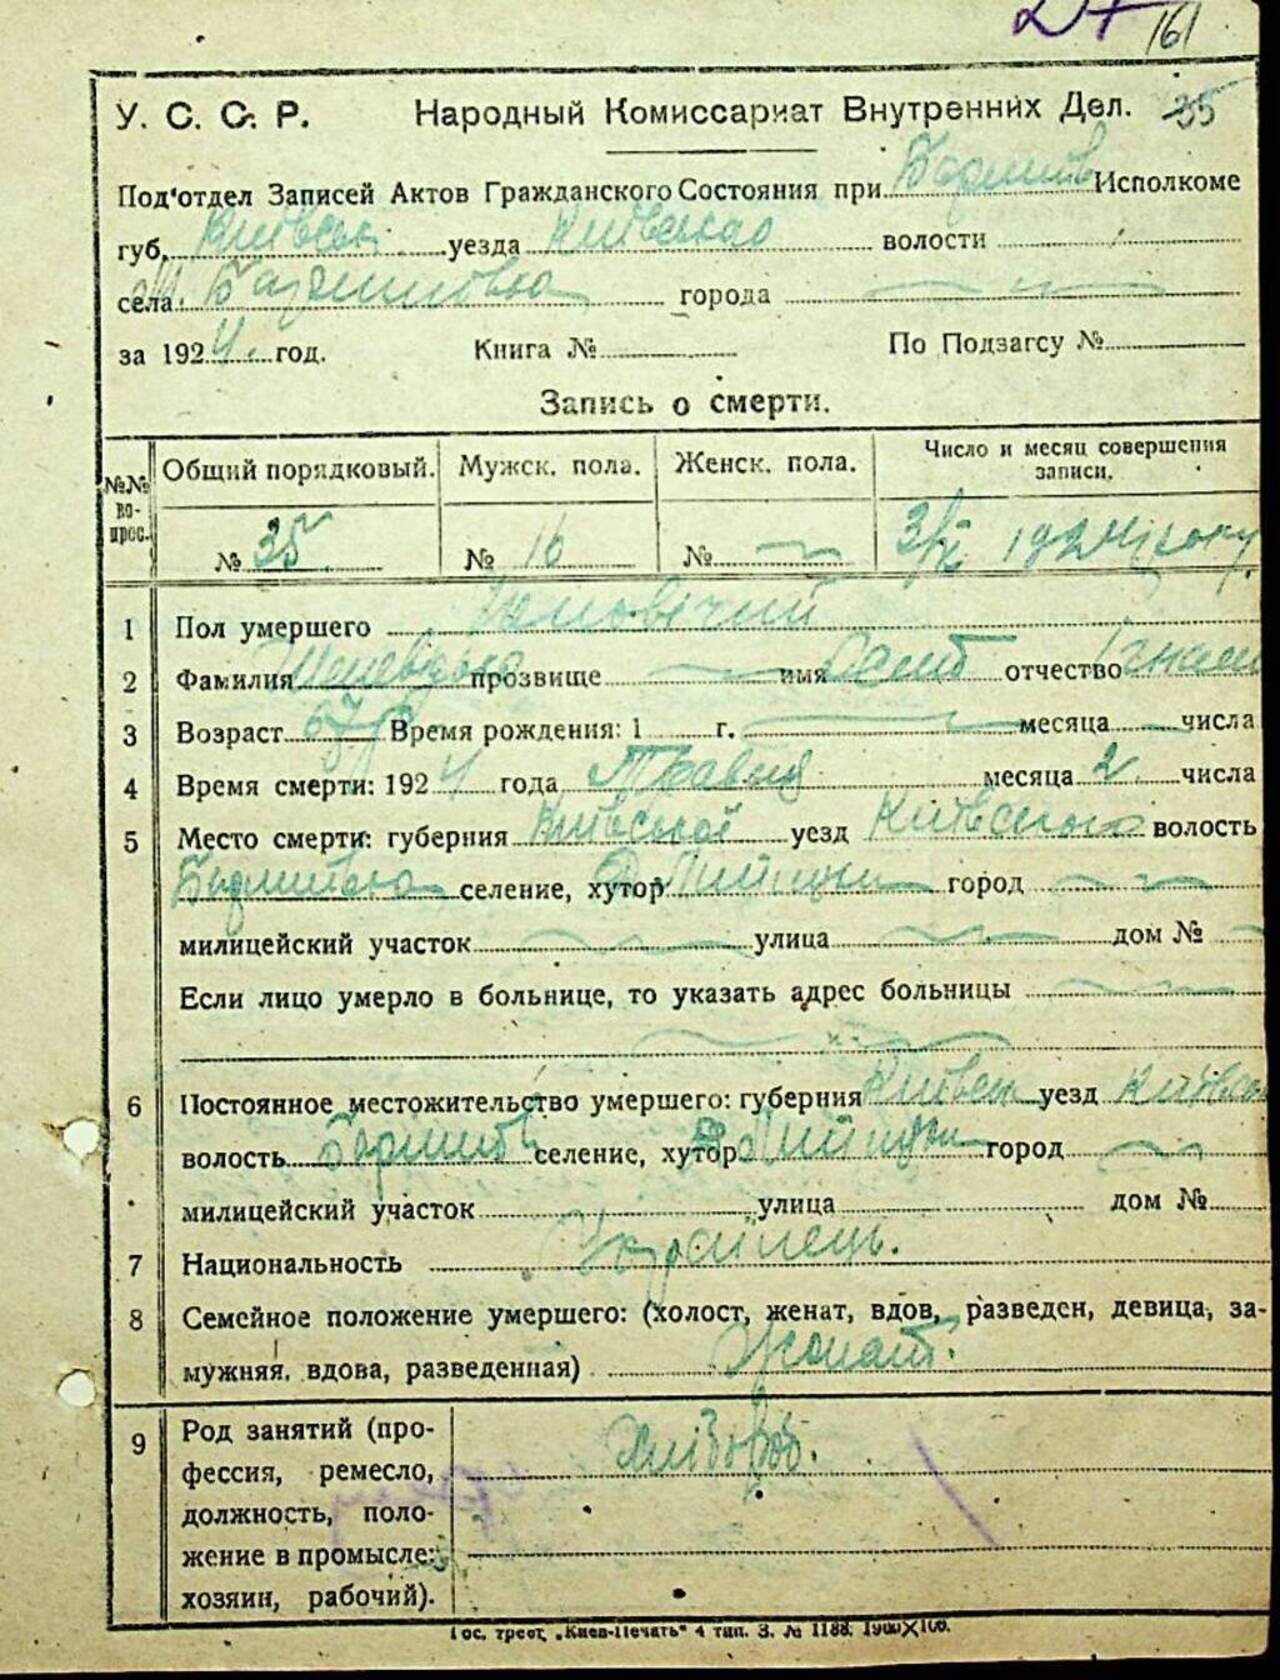 161
У. С. С. Р. Народный Комиссариат Внутренних Дел. 35
Под'отдел Записей Актов Гражданского Состояния при Исполкоме
губ. Київськ уезда Київсько волости
села. м. города
за 1924. год. Книга № По Подзагсу №
Запись о смерти.
№№ во-прос. Общий порядковый. Мужск. пола. Женск. пола. Число и месяц совершения записи.
№ 35 № 16 № 3/V 1924 року
1 Пол умершего Чоловічий
2 Фамилия прозвище имя отчество
3 Возраст 67 р Время рождения: 1 г. месяца числа
4 Время смерти: 1924 года Травня месяца 2 числа
5 Место смерти: губерния Київської уезд Київського волость
селение, хутор город
милицейский участок улица дом №
Если лицо умерло в больнице, то указать адрес больницы
6 Постоянное местожительство умершего: губерния Київськ уезд Київськ
волость селение, хутор город
милицейский участок улица дом №
7 Национальность Українець.
8 Семейное положение умершего: (холост, женат, вдов, разведен, девица, за-
мужняя, вдова, разведенная) Жонат.
9 Род занятий (про- Хлібороб.
фессия, ремесло,
должность, поло-
жение в промысле:
хозяин, рабочий).
Гос. трест „Киев-Печать“ 4 тип. З. № 1188. 1900×100.